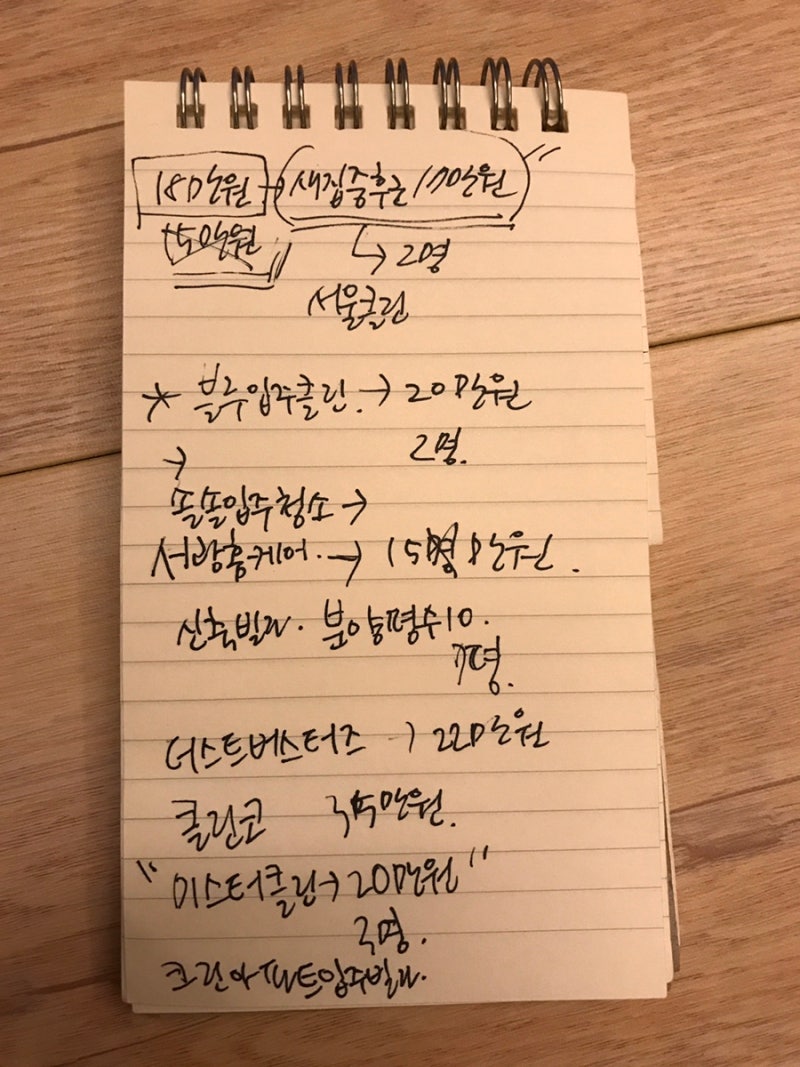 18만원 → 새집중후군 10만원
15만원
↳ 2명
서울클린
* 블루입주클린. → 20만원
2명.
→
똘똘입주청소 →
서광홈케어. → 15만원.
신축빌라. 분양평수10.
7평.
더스트버스터즈 → 22만원
클린코 35만원.
"미스터클링→ 20만원"
3명.
크린아파트입주빌라.